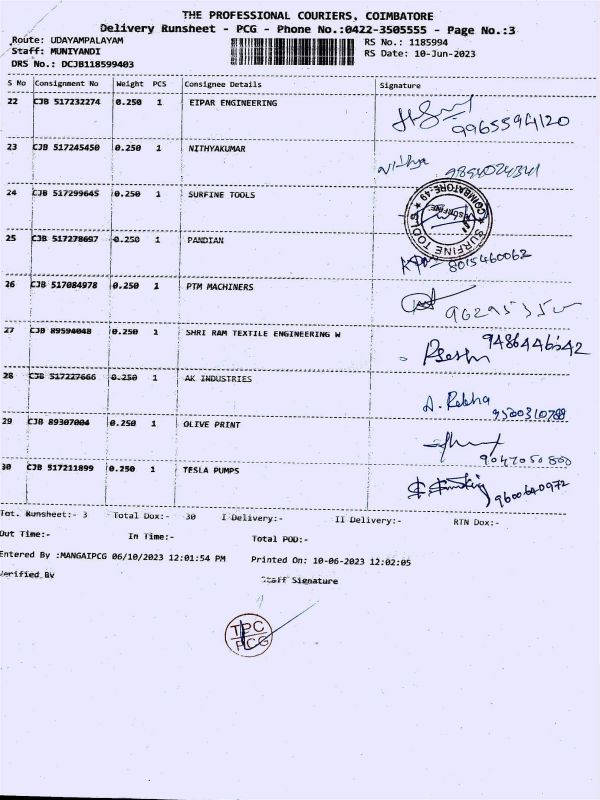 THE PROFESSIONAL COURIERS, COIMBATORE
Delivery Runsheet - PCG - Phone No.:0422-3505555 - Page No.:3
Route: UDAYAMPALAYAM RS No.: 1185994
Staff: MUNIYANDI RS Date: 10-Jun-2023
DRS No.: DCJB118599403
S No Consignment No Weight PCS Consignee Details Signature
22 CJB 517232274 0.250 1 EIPAR ENGINEERING
9965594120
23 CJB 517245450 0.250 1 NITHYAKUMAR
Nithya 9894024341
24 CJB 517299645 0.250 1 SURFINE TOOLS
★ SURFINE TOOLS ★ COIMBATORE-49
25 CJB 517278697 0.250 1 PANDIAN
8015460062
26 CJB 517084978 0.250 1 PTM MACHINERS
27 CJB 89594048 0.250 1 SHRI RAM TEXTILE ENGINEERING W
9486446542
28 CJB 517227666 0.250 1 AK INDUSTRIES
A. Rekha
9500310788
29 CJB 89307004 0.250 1 OLIVE PRINT
9047050800
30 CJB 517211899 0.250 1 TESLA PUMPS
9600640972
Tot. Runsheet:- 3 Total Dox:- 30 I Delivery:- II Delivery:- RTN Dox:-
Out Time:- In Time:- Total POD:-
Entered By :MANGAIPCG 06/10/2023 12:01:54 PM Printed On: 10-06-2023 12:02:05
Verified By Staff Signature
TPC
PCG